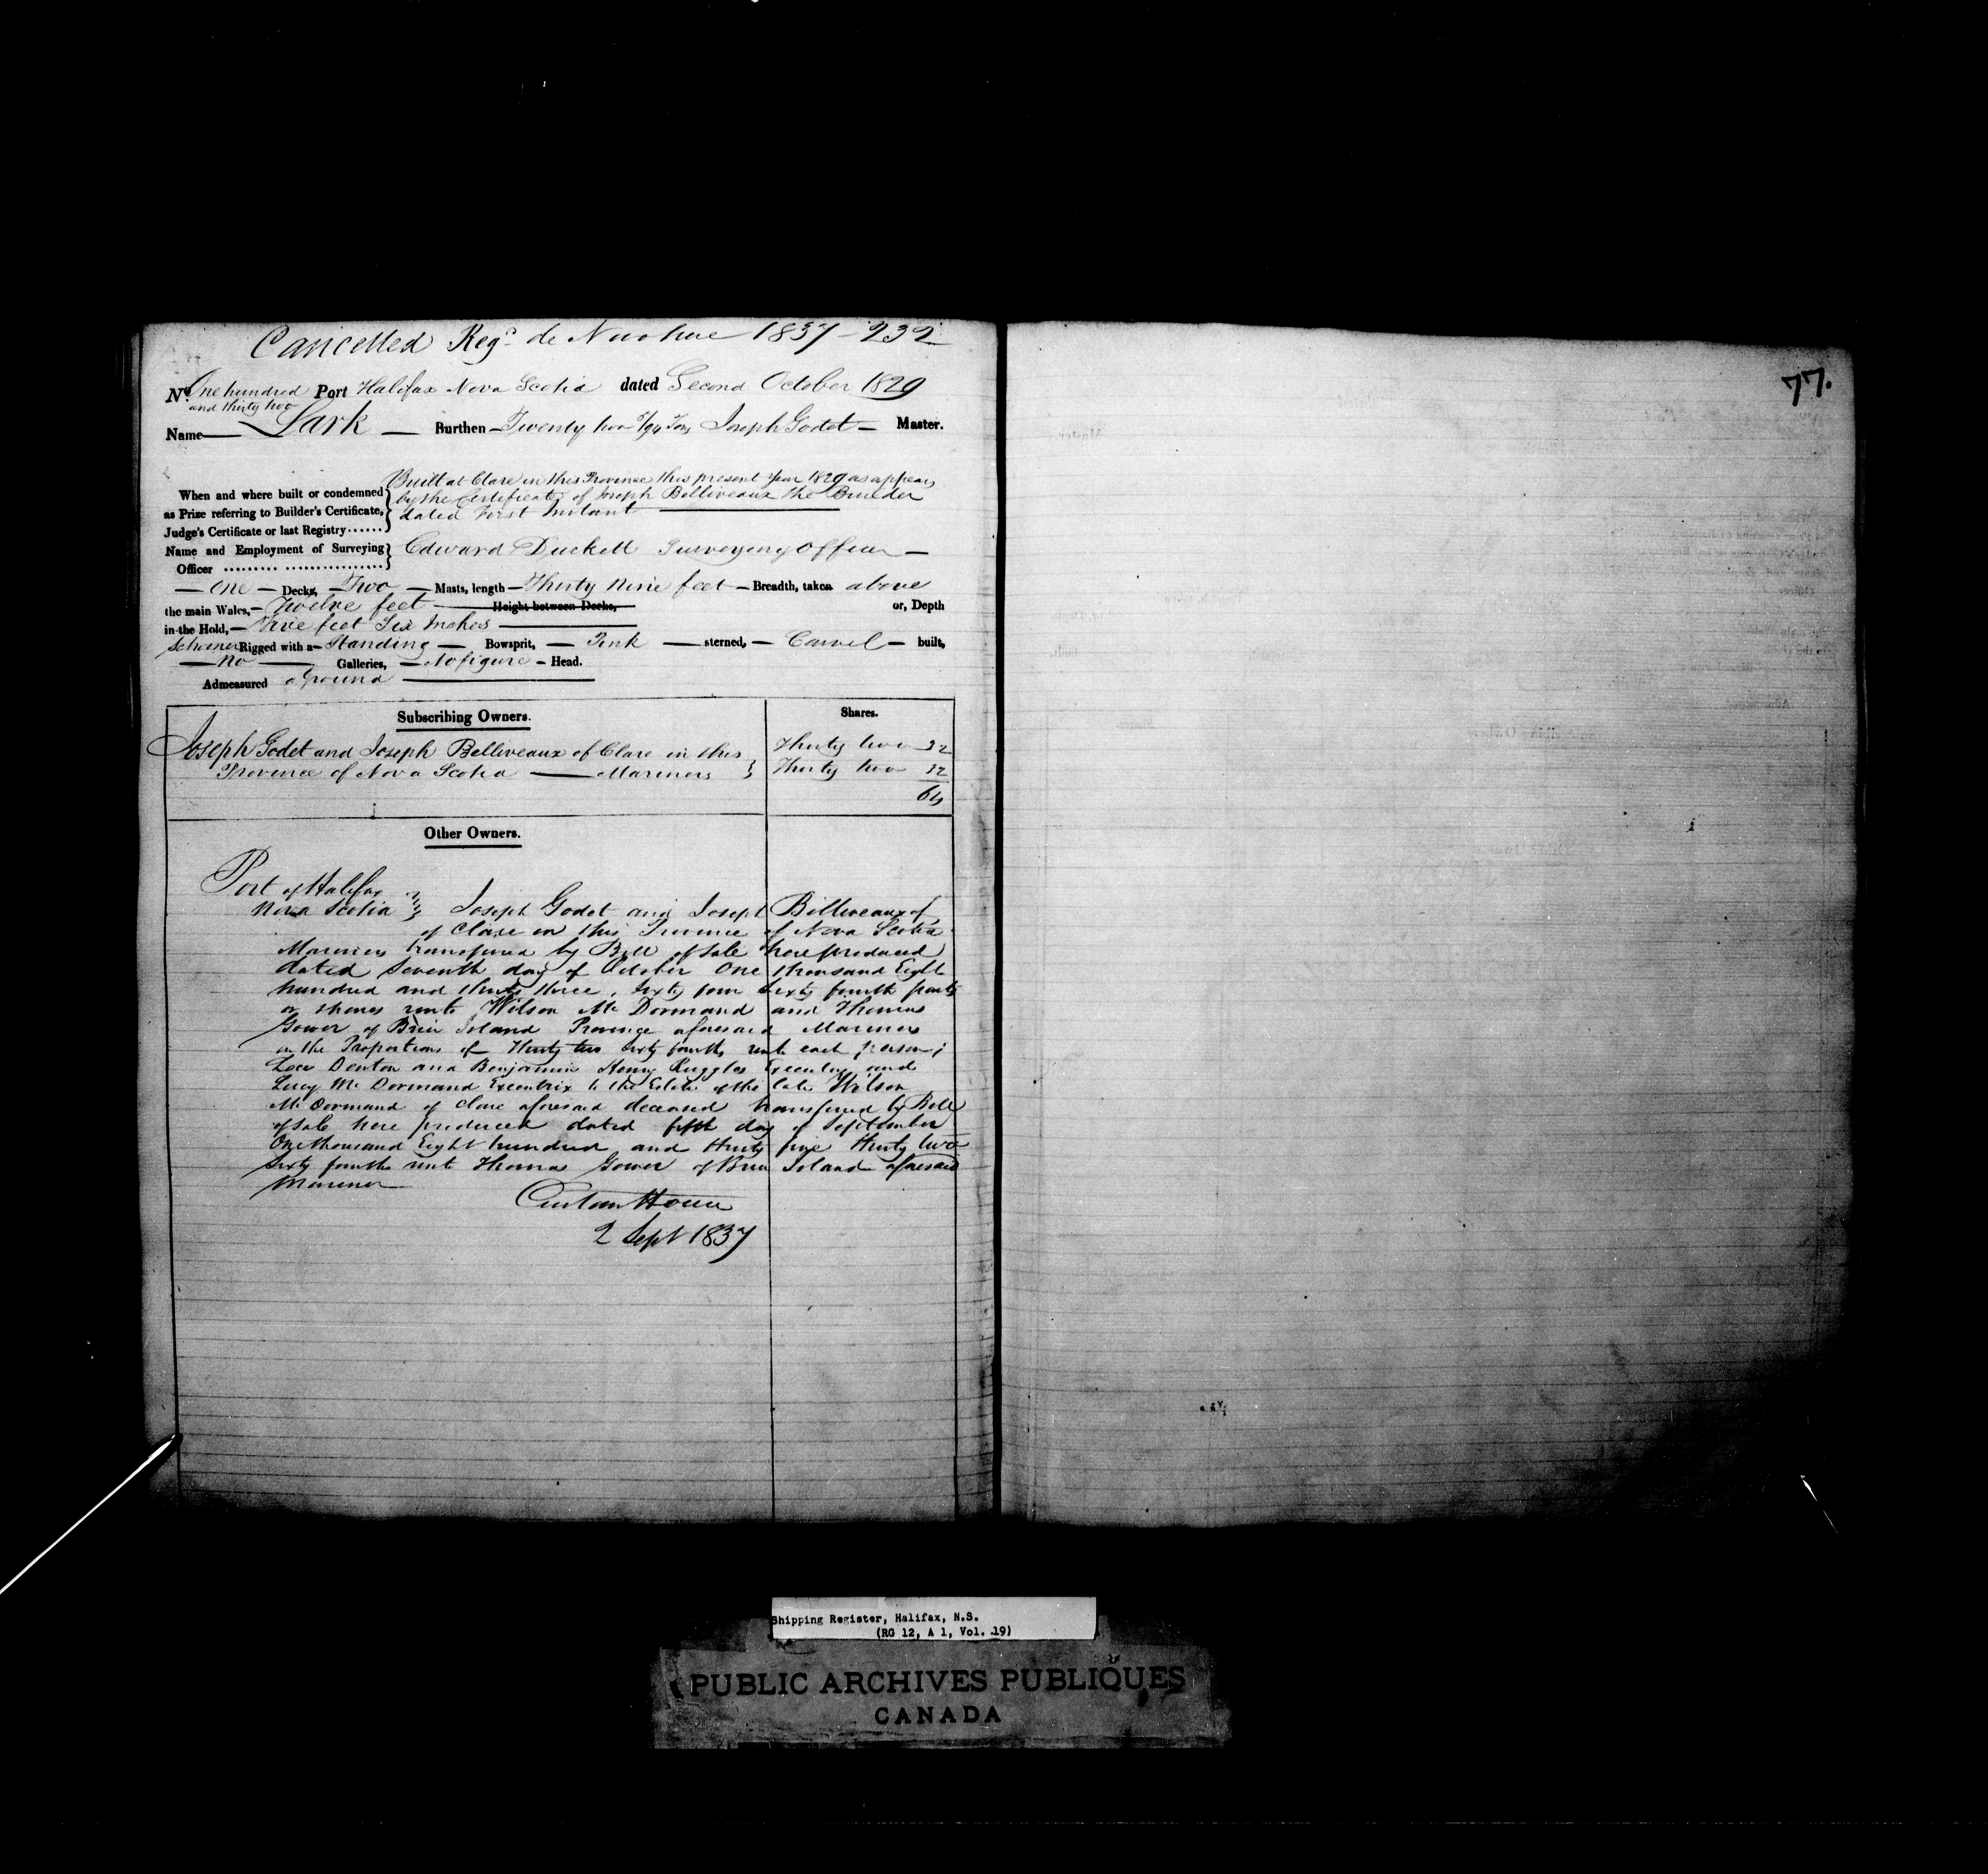 Cancelled Reg.d de Novo here 1837 - 232
No. One hundred Port Halifax Nova Scotia dated Second October 1829
and thirty two
Name Lark Burthen Twenty two /94 Tons Joseph Godet Master.
Built at Clare in this Province this present Year 1829 as appears
When and where built or condemned by the Certificate of Joseph Belliveaux the Builder
as Prize referring to Builder's Certificate, dated First Instant
Judge's Certificate or last Registry
Name and Employment of Surveying Edward Duckett Surveying Officer
Officer
One Decks, Two Masts, length Thirty Nine feet Breadth, taken above
the main Wales, Twelve feet Height between Decks, or, Depth
in the Hold, Five feet Six Inches
Schooner Rigged with a Standing Bowsprit, Pink sterned, Carvel built,
No Galleries, No figure Head.
Admeasured aground
Subscribing Owners. Shares.
Joseph Godet and Joseph Belliveaux of Clare in this Thirty two 32
Province of Nova Scotia Mariners Thirty two 32
64
Other Owners.
Port of Halifax
Nova Scotia Joseph Godet and Joseph Belliveaux of
of Clare in this Province of Nova Scotia
Mariners transferred by Bill of Sale here produced
dated Seventh day of October One thousand Eight
hundred and thirty three, Sixty four Sixty fourth parts
or shares unto Wilson Mc Dormand and Thomas
Gower of Brier Island Province aforesaid Mariners
in the Proportions of Thirty two Sixty fourths unto each person;
Denton and Benjamin Henry Ruggles Executors and
Lucy Mc Dormand Executrix to the Estate of the late Wilson
Mc Dormand of Clare aforesaid deceased transferred by Bill
of Sale here produced dated fifth day of September
One thousand Eight hundred and thirty five Thirty two
Sixty fourths unto Thomas Gower of Brier Island aforesaid
Mariner
Custom House
2 Sept 1837
77.
Shipping Register, Halifax, N.S.
(RG 12, A 1, Vol. 19)
PUBLIC ARCHIVES PUBLIQUES
CANADA